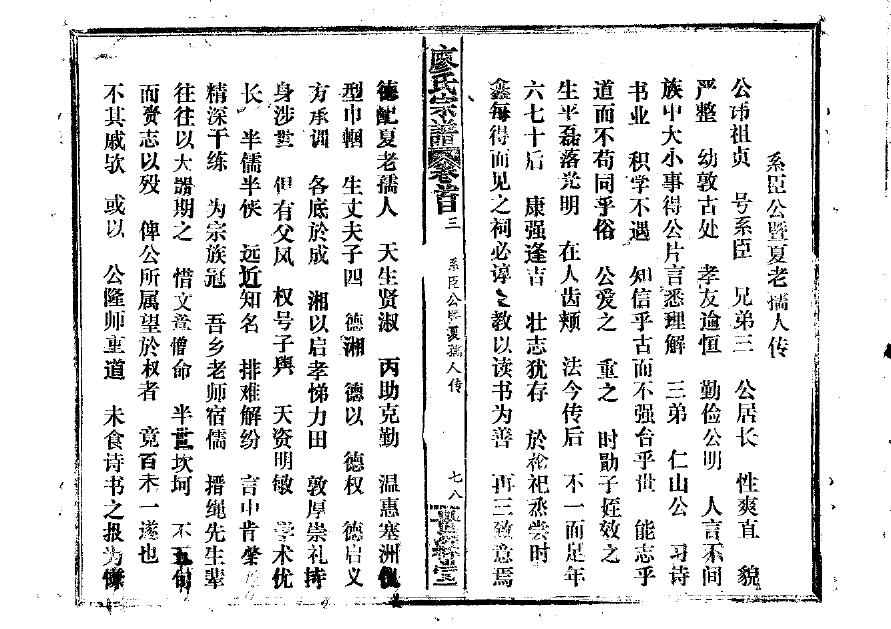 系臣公暨夏老孺人传
公玮祖贞 号系臣 兄弟三 公居长 性爽直 貌
严整 幼敦古处 孝友逾恒 勤俭公明 人言不间
族中大小事得公片言悉理解 三弟 仁山公 习诗
书业 积学不遇 知信乎古而不强合乎世 能志乎
道而不苟同乎俗 公爱之 重之 时勖子姪效之
生平磊落光明 在人齿颊 法今传后 不一而足年
六七十后 康强逢吉 壮志犹存 於礿祀烝尝时
鑫每得而见之祠必谆之教以读书为善 再三致意焉
廖氏宗譜 卷首 三 系臣公暨夏孺人传 七八
德配夏老孺人 天生贤淑 丙助克勤 温惠塞洲
型巾帼 生丈夫子四 德湘 德以 德权 德启义
方承调 各底於成 湘以启孝悌力田 敦厚崇礼持
身涉世 但有父风 权号子舆 天资明敏 学术优
长 半儒半侠 远近知名 排难解纷 言中肯綮
精深干练 为宗族冠 吾乡老师宿儒 搢绳先生辈
往往以大器期之 惜文章僧命 半世坎坷 不五旬
而赍志以殁 俾公所属望於权者 竟百未一遂也
不其戚欤 或以 公隆师重道 未食诗书之报为慊